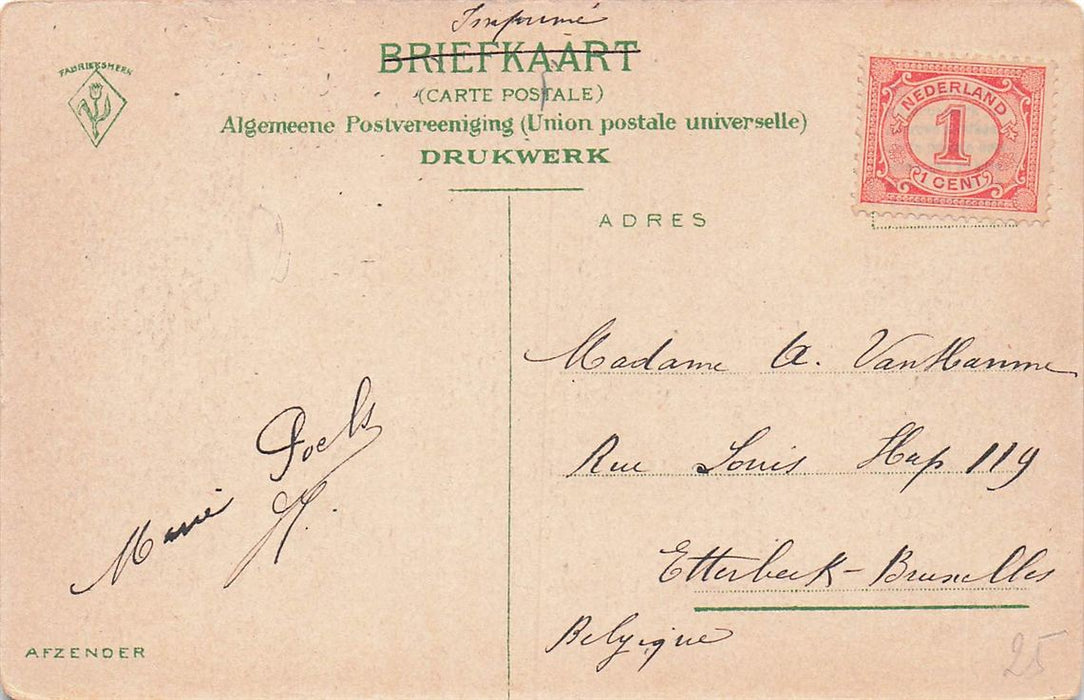 Imprimé
BRIEFKAART
(CARTE POSTALE)
Algemeene Postvereeniging (Union postale universelle)
DRUKWERK
FABRIEKSMERK
NEDERLAND
1
1 CENT
ADRES
Madame A. VanHamme
Rue Louis Hap 119
Etterbeek-Bruxelles
Belgique
Poels
H.
Marie
AFZENDER
25